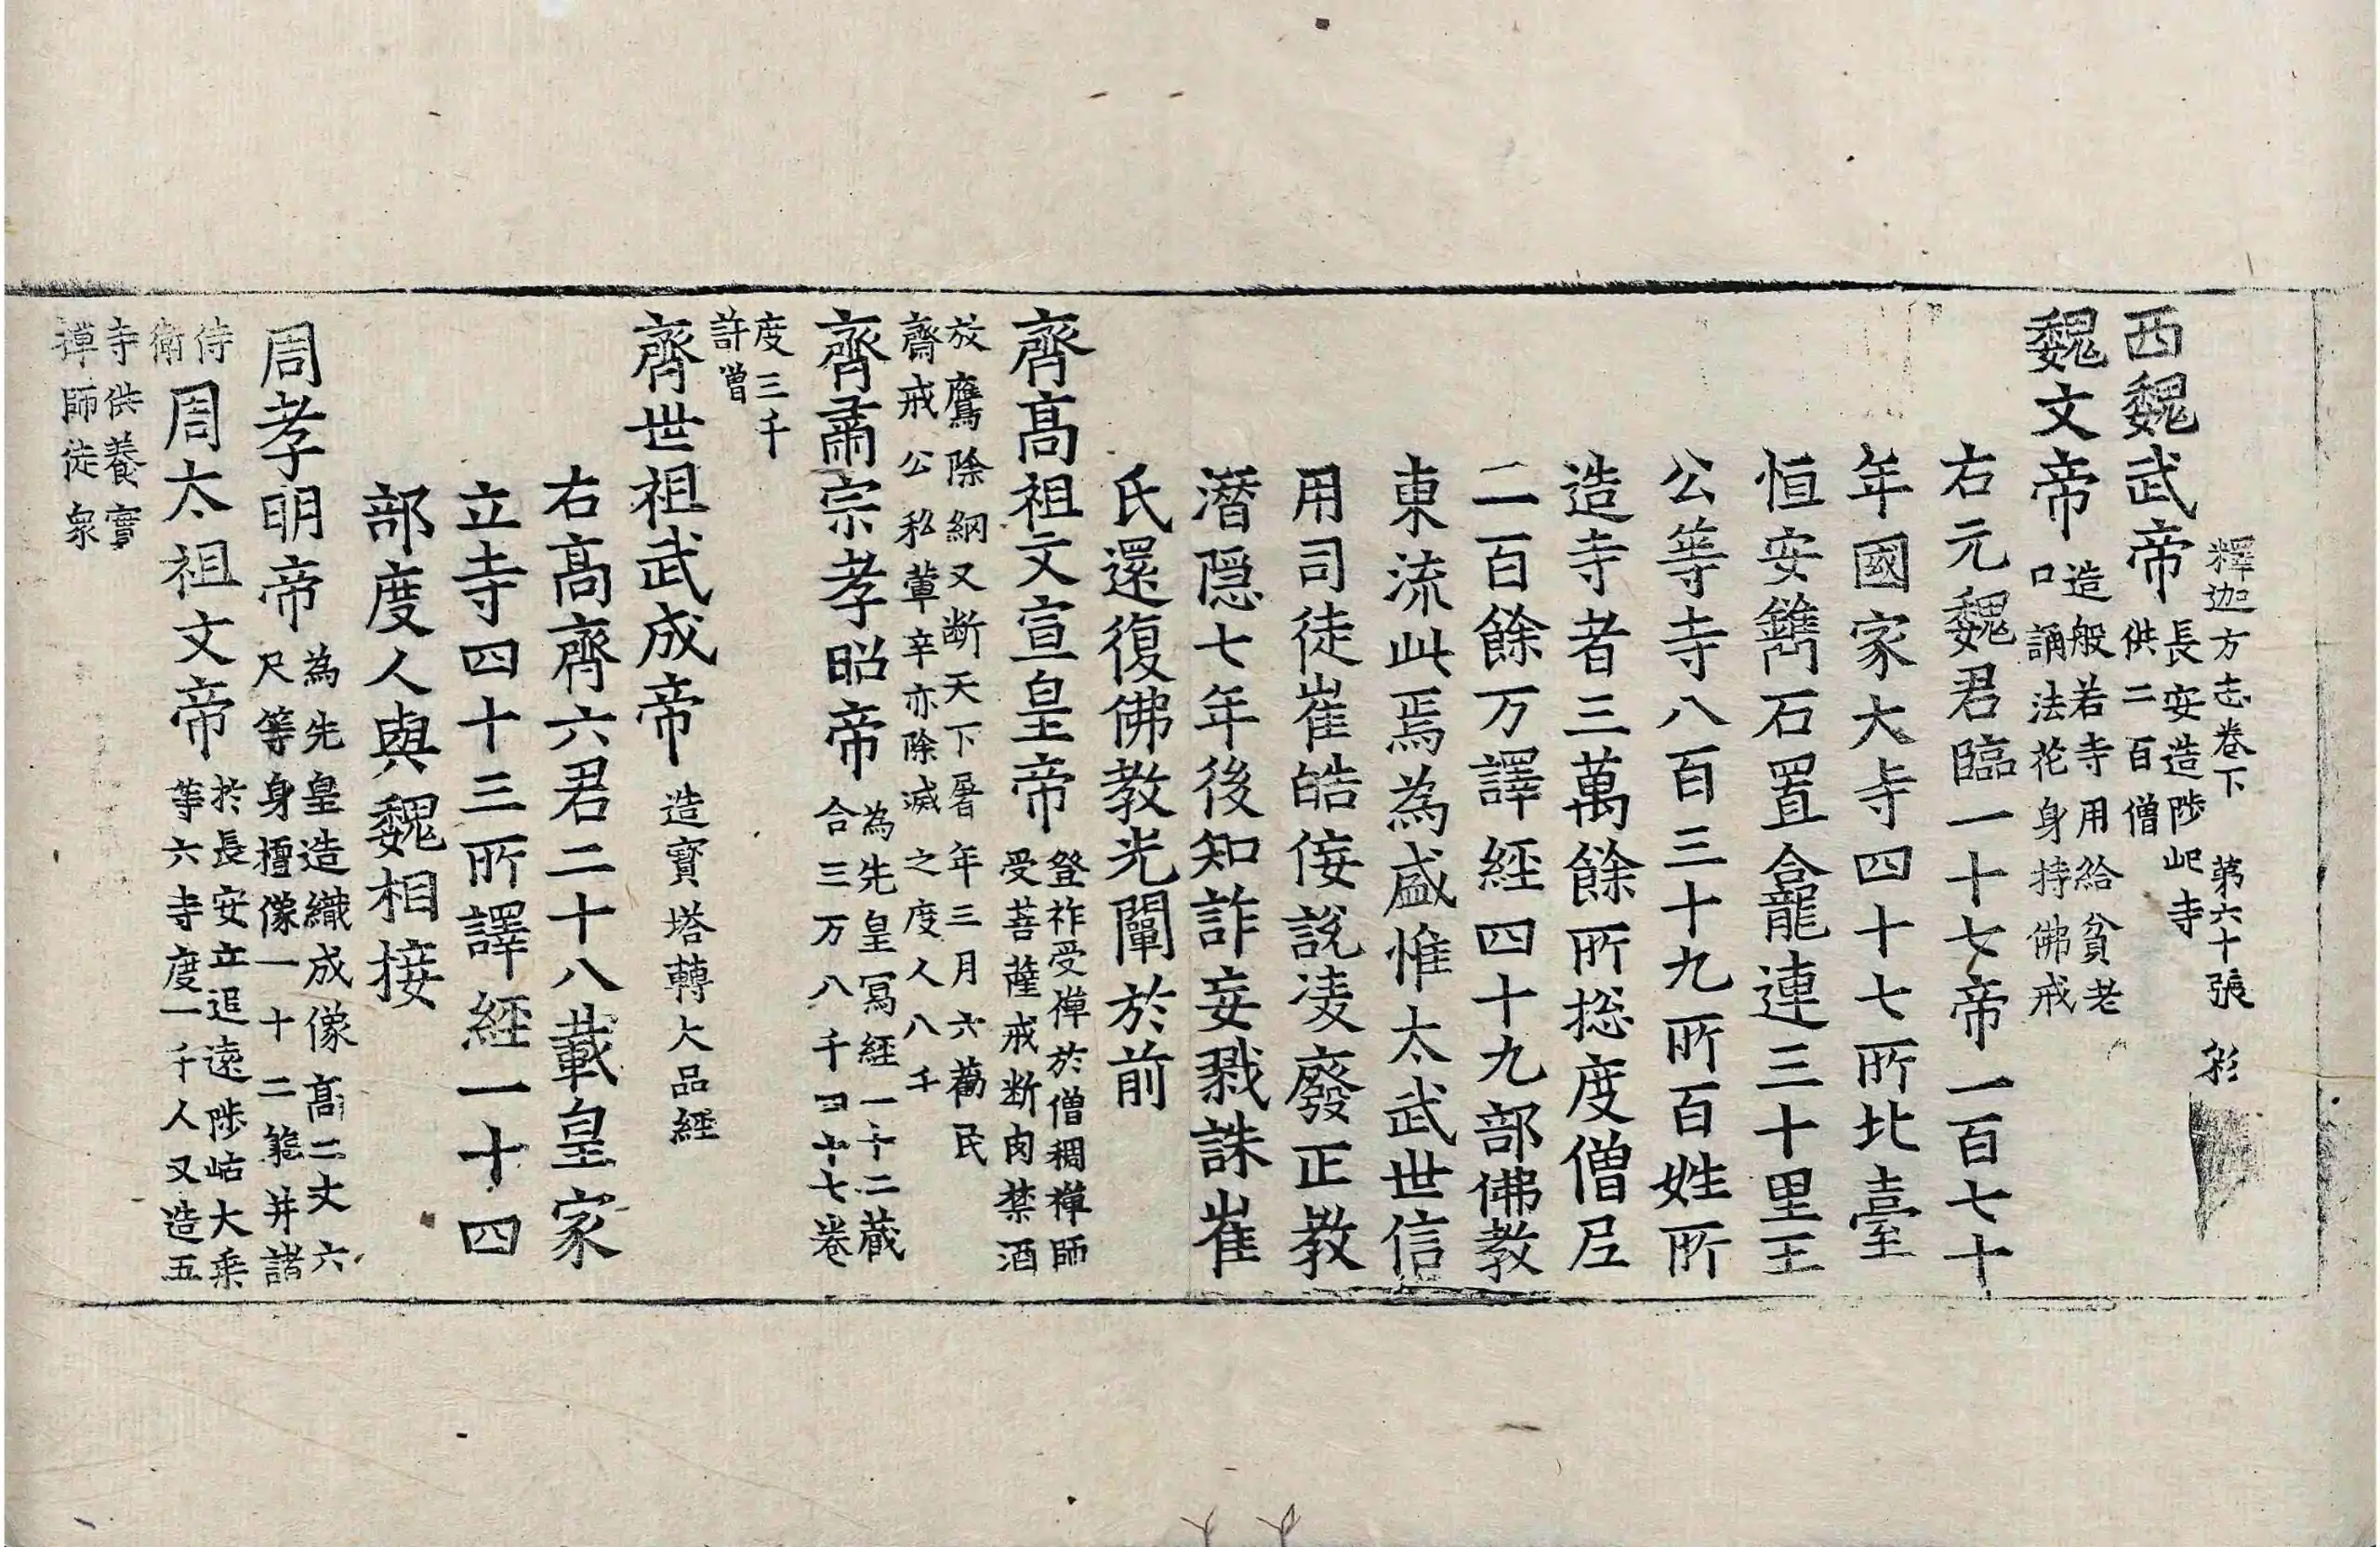 釋迦方志卷下 第六十張 彩
西魏武帝長安造陟屺寺供二百僧
魏文帝造般若寺用給貧老口誦法花身持佛戒
右元魏君臨一十七帝一百七十
年國家大寺四十七所北臺
恒安鐫石置龕連三十里王
公等寺八百三十九所百姓所
造寺者三萬餘所揔度僧尼
二百餘万譯經四十九部佛教
東流此焉為盛惟太武世信
用司徒崔皓侫說淩廢正教
潛隱七年後知詐妄戮誅崔
氏還復佛教光闡於前
齊高祖文宣皇帝登祚受禪於僧稠禪師受菩薩戒断肉禁酒
放鷹除網又断天下屠年三月六勸民齋戒公私葷辛亦除滅之度人八千
齊肅宗孝昭帝為先皇寫經一十二藏合三万八千四十七卷
度三千許僧
齊世祖武成帝造寳塔轉大品經
右高齊六君二十八載皇家
立寺四十三所譯經一十四
部度人與魏相接
周孝明帝為先皇造織成像高二丈六尺等身檀像一十二龕并諸
侍衛周太祖文帝於長安立追遠陟岵大乘等六寺度一千人又造五
寺供養實禪師徒衆